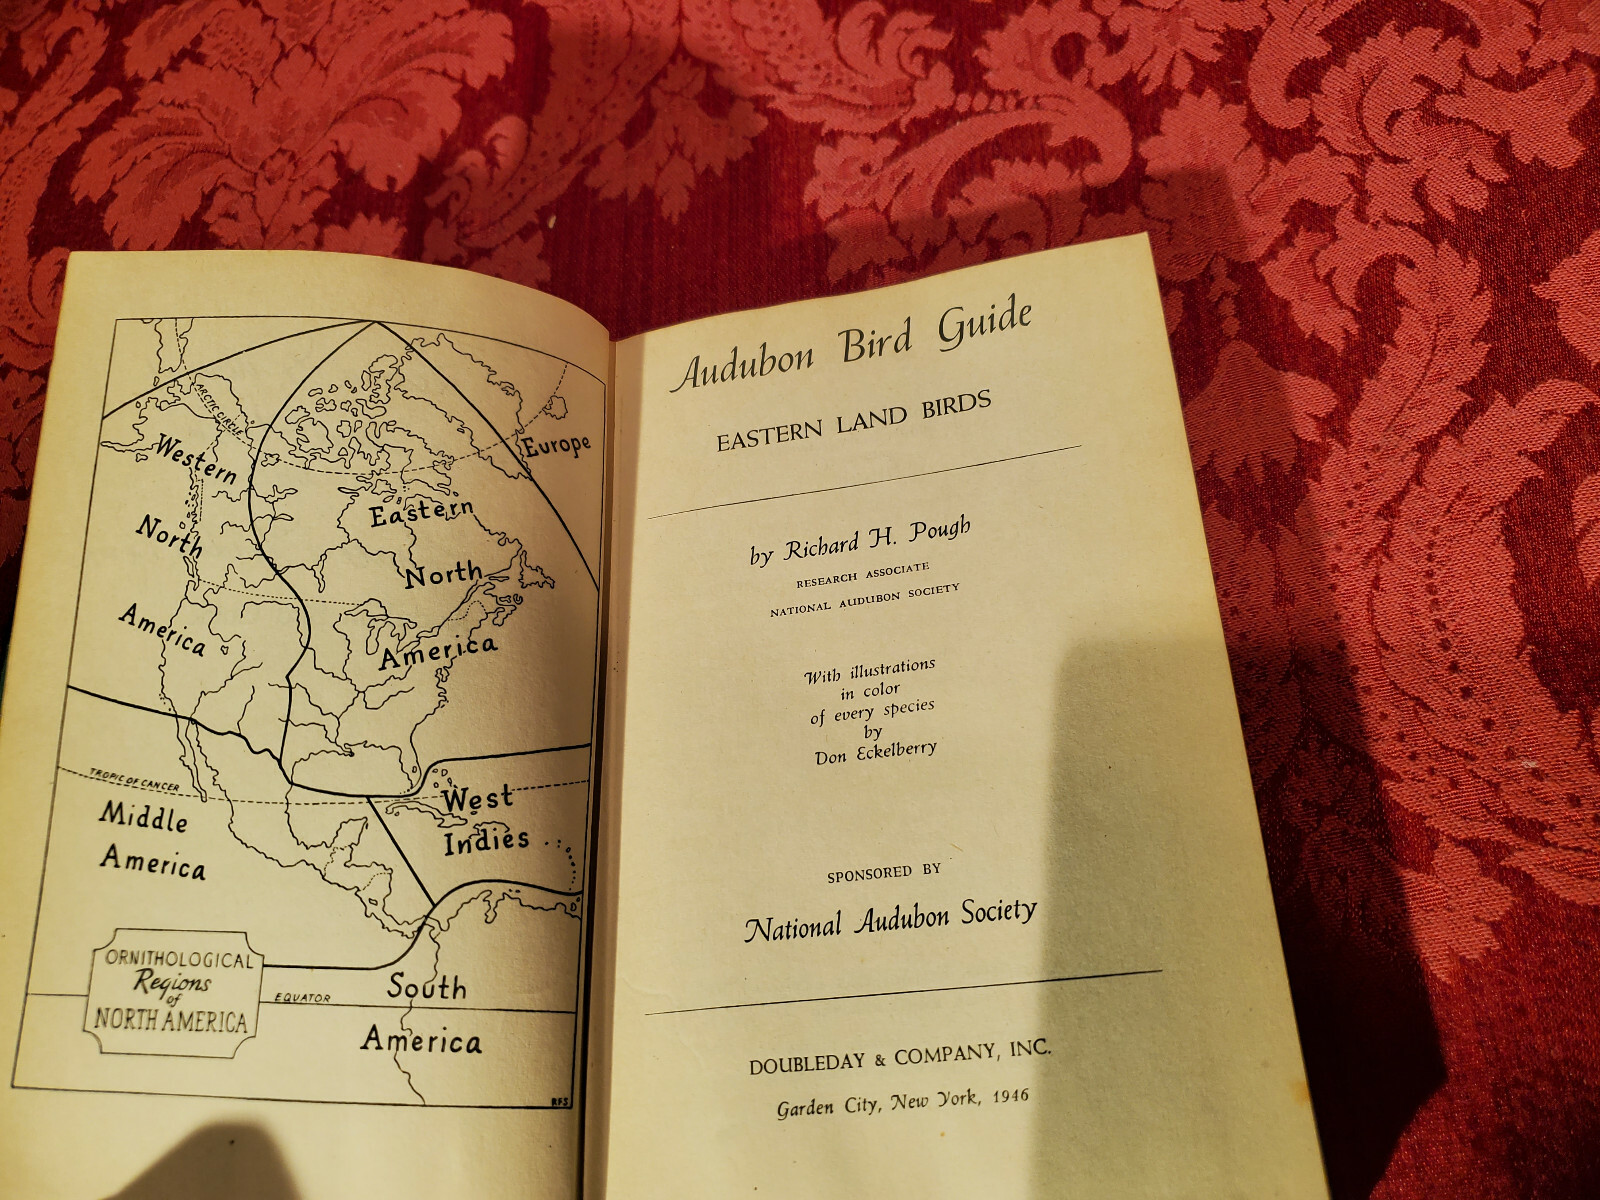 ARCTIC CIRCLE
Europe
Western
North
America
Eastern
North
America
TROPIC OF CANCER
Middle
America
West
Indies
ORNITHOLOGICAL
Regions
of
NORTH AMERICA
EQUATOR
South
America
RFS
Audubon Bird Guide
EASTERN LAND BIRDS
by Richard H. Pough
RESEARCH ASSOCIATE
NATIONAL AUDUBON SOCIETY
With illustrations
in color
of every species
by
Don Eckelberry
SPONSORED BY
National Audubon Society
DOUBLEDAY & COMPANY, INC.
Garden City, New York, 1946